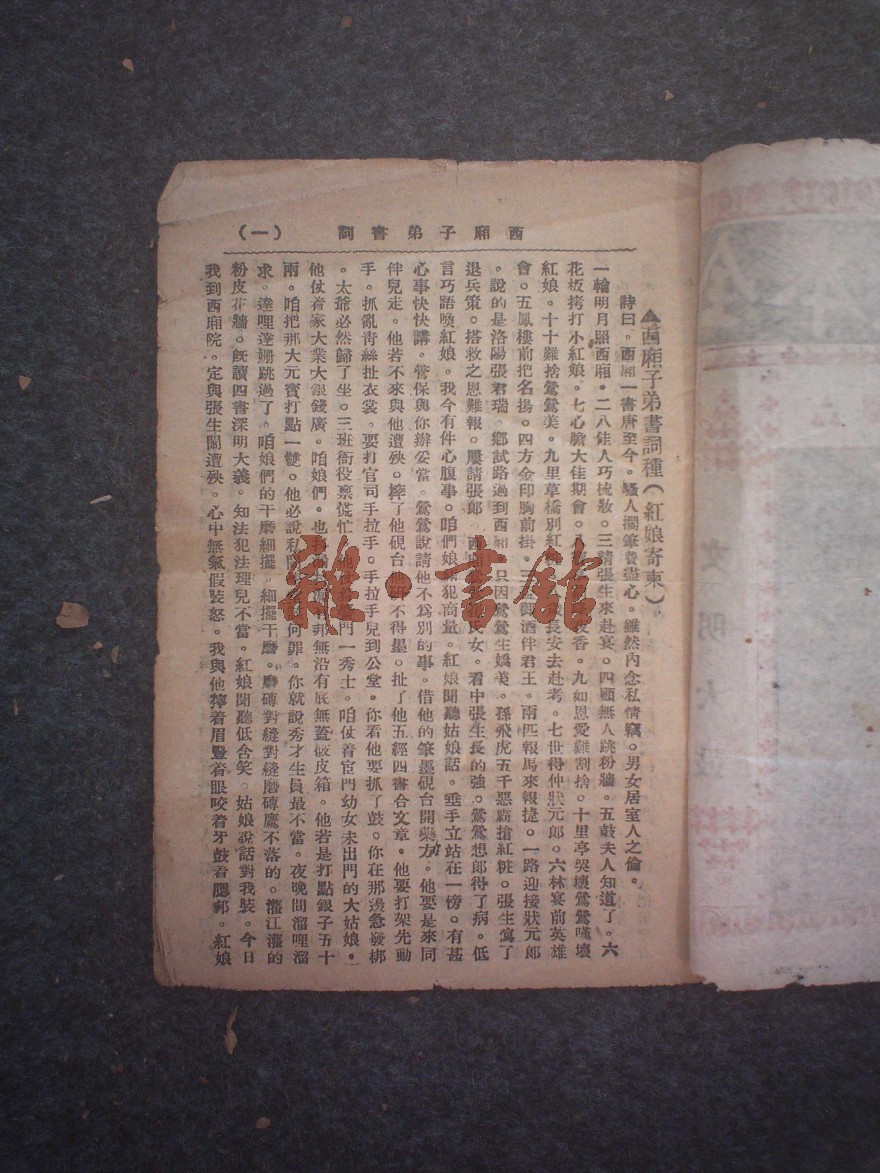 西廂子弟書詞 （一）
▲西廂子弟書詞種（紅娘寄柬）。
詩曰。西廂一書唐至今。騷人擱筆費盡心。雖然內念私情竊。男女居室人之倫。
一輪明月照西廂。二八佳人巧梳妝。三請張生來赴宴。四顧無人跳粉牆。五鼓夫人知道了。六
花板拷打小紅娘。七心膽大佳期會。八香。九如恩愛難割捨。十里亭哭壞鶯鶯嘆壞
紅娘。十十難捨鶯鶯美。九里草橋別紅長安去赴考。七世得仲狀元郎。六林宴前英雄
會。五鳳樓前把名揚。四方金印胸前掛。三御酒伴君王。兩匹報馬來報捷。一路迎接狀元郎
。說的是洛陽張君瑞。鄉試路過到西廂。只因鶯鶯生嬌美。孫飛虎五千惡霸搶紅粧。張生寫了
退兵策。搭救之恩難報。屢請張郎。西女。看中張生長的強。鶯鶯想郎得了病。低
言巧語喚紅娘。我今有件心腹事。咱們娘犯商量。紅娘聞聽姑娘話。垂手立站在一傍。有甚
心事快快講。管保與你辦妥當。鶯鶯說請他不為別的事。借他的筆墨硯台開藥方。他要是來同
伴兒走。他若不來與他遭殃。摔了他硯台他研不得墨。扯了他五經四書合文章。他要打架先動
手。抓亂青絲扯衣裳。要打官司手拉手。手拉手兒到公堂。你看他要抓了鼓。你在那邊急發梆
。太爺必然歸了坐。三班衙役禀慌忙。他仗門一秀士。咱仗着宦門幼女未出門的大姑娘。
他仗着家大業大銀錢廣。咱娘們。也邦無沿有底無蓋破皮箱。他若是打點銀子五十
兩。咱把那大元寳打點一雙。他必說私何罪。你就說秀才生員最不當。夜晚間溜哩溜
求。達哩達姍跳過了。咱娘們的干磨細擺。細擺干磨。磨磚對縫對縫磨磚鷹不落的。灌江灌的
粉皮花牆。旣讀四書深明大義。知法犯法理兒不當。紅娘聞聽低含笑。姑娘說話對我裝。今日
我到西廂院。定與張生鬧遭殃。心中無氣假裝怒。我與他擰着眉豎着眼咬着牙鼓着腮邦。紅娘
雜·書館
文明